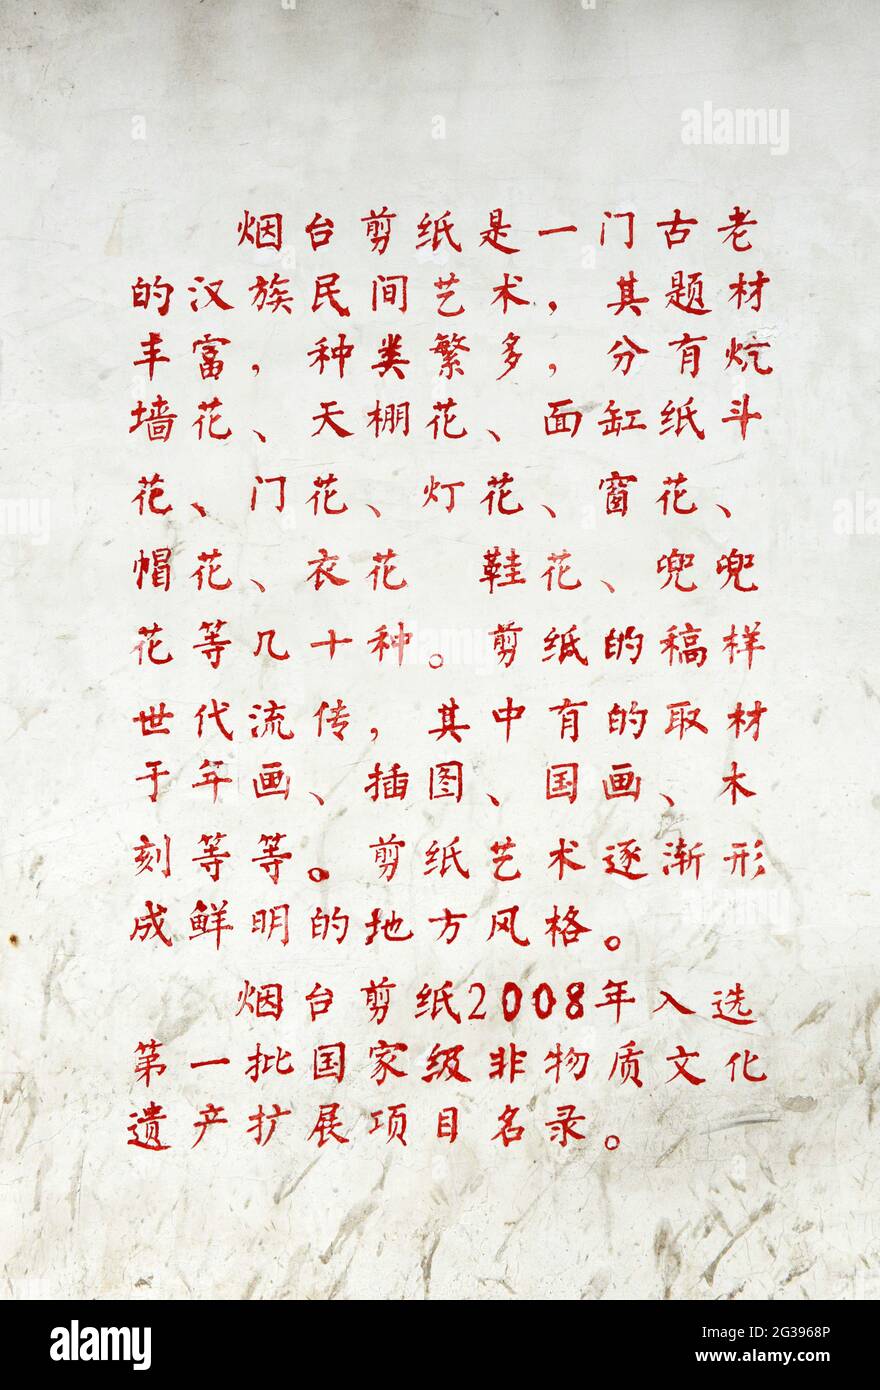 烟台剪纸是一门古老
的汉族民间艺术，其题材
丰富，种类繁多，分有炕
墙花、天棚花、面缸纸斗
花、门花、灯花、窗花、
帽花、衣花 鞋花、兜兜
花等几十种。剪纸的稿样
世代流传，其中有的取材
于年画、插图、国画、木
刻等等。剪纸艺术逐渐形
成鲜明的地方风格。
烟台剪纸2008年入选
第一批国家级非物质文化
遗产扩展项目名录。
alamy
alamy
Image ID: 2G3968P
www.alamy.com